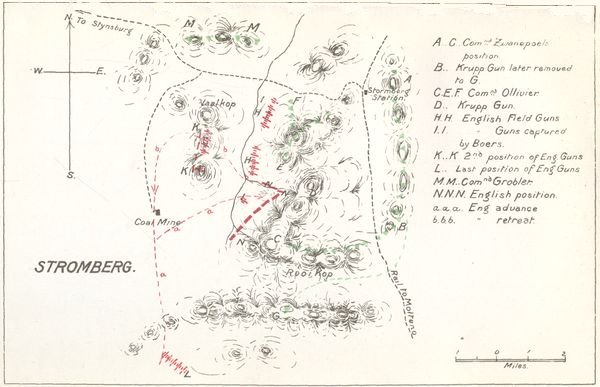 N.
To Stynsburg
W.
E.
S.
M
M
A
Stormberg
Station.
Vaalkop
H
F
K
E
H
K
b
b
a
N
N
Coal Mine
a
N
C
B
Rooi Kop
STROMBERG.
a
G
Rail to Molteno
L
1 0 1 2
Miles.
A..C. Comdt Zwanepoels
position.
B.. Krupp Gun later removed
to G.
C.E.F. Comdt Ollivier.
D.. Krupp Gun.
H.H. English Field Guns
I.I. " Guns captured
by Boers.
K..K 2nd position of Eng. Guns
L.. Last position of Eng Guns
M.M. Comdt Grobler.
N.N.N. English position.
a.a.a. Eng advance
b.b.b. " retreat.